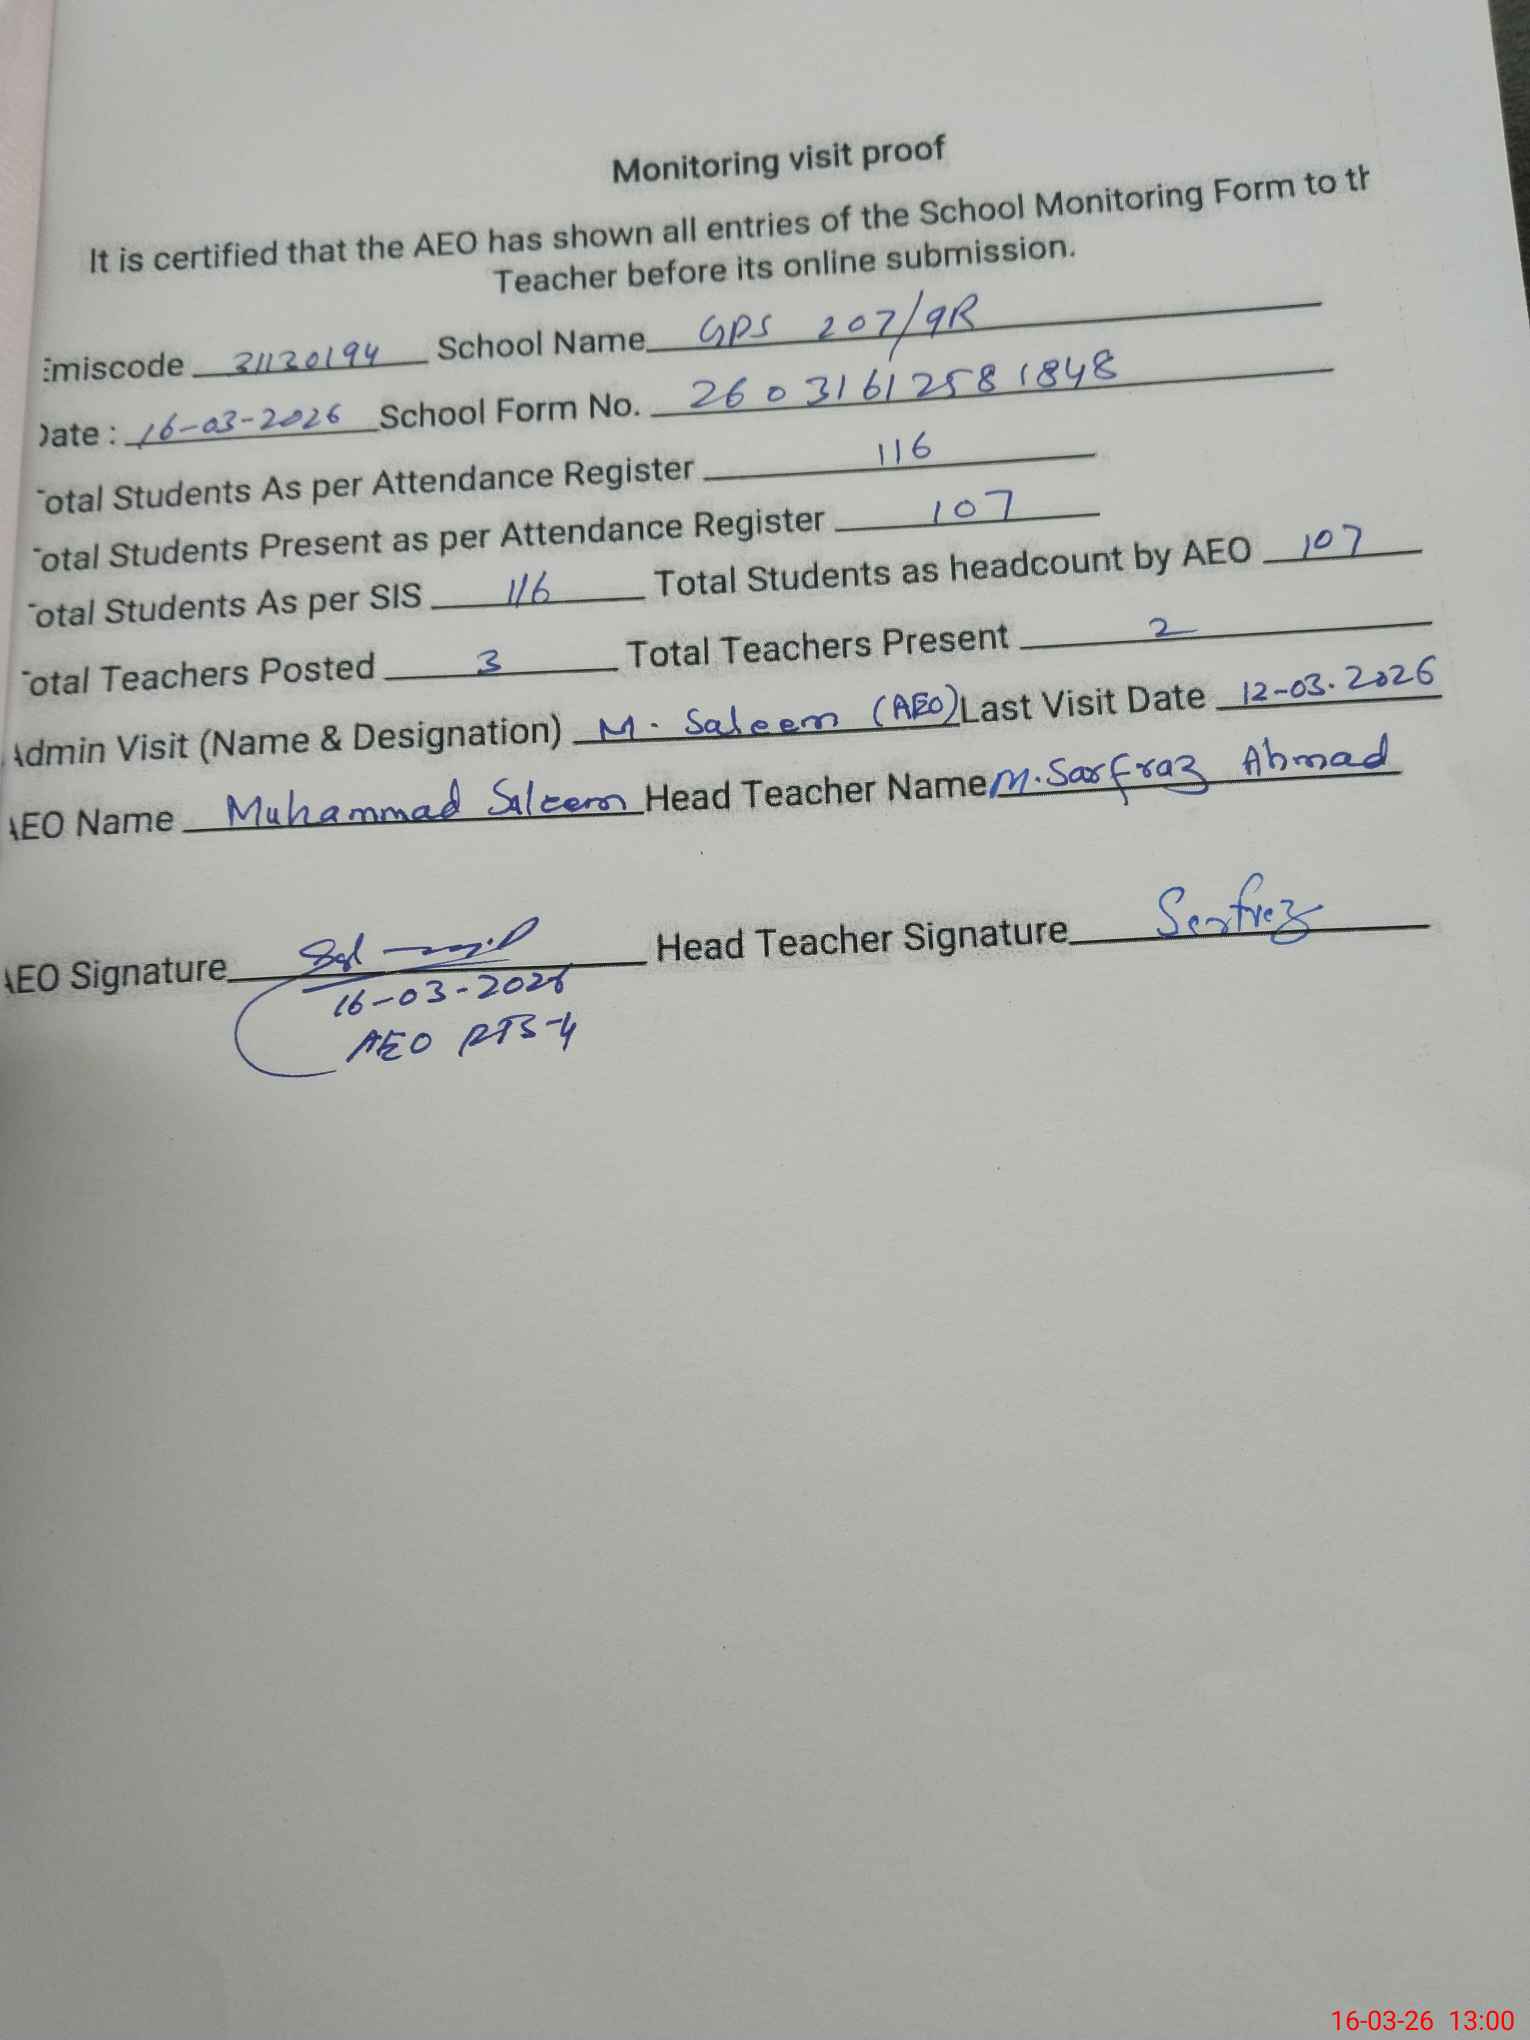 Monitoring visit proof
It is certified that the AEO has shown all entries of the School Monitoring Form to th
Teacher before its online submission.
Emiscode 31130194 School Name GPS 207/9R
Date : 16-03-2026 School Form No. 2603161258 1848
Total Students As per Attendance Register 116
Total Students Present as per Attendance Register 107
Total Students As per SIS 116 Total Students as headcount by AEO 107
Total Teachers Posted 3 Total Teachers Present 2
Admin Visit (Name & Designation) M. Saleem (AEO) Last Visit Date 12-03-2026
AEO Name Muhammad Saleem Head Teacher Name M. Sarfraz Ahmad
AEO Signature Head Teacher Signature Sarfraz
16-03-2026
AEO
16-03-26 13:00